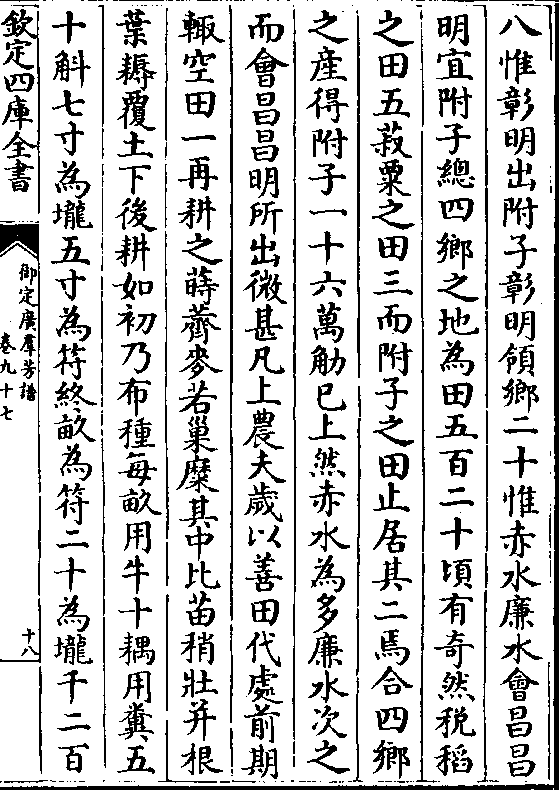 八惟彰明出附子彰明領鄉二十惟赤水廉水會昌昌
明宜附子總四鄉之地為田五百二十頃有奇然稅稻
之田五菽粟之田三而附子之田止居其二焉合四鄉
之産得附子一十六萬觔已上然赤水為多廉水次之
而會昌昌明所出微甚凡上農夫歲以善田代處前期
輙空田一再耕之蒔薺麥若巢糜其中比苗稍壯并根
葉耨覆土下後耕如初乃布種每畝用牛十耦用糞五
十斛七寸為壠五寸為符終畝為符二十為壠千二百
欽定四庫全書
御定廣羣芳譜
卷九十七
十八